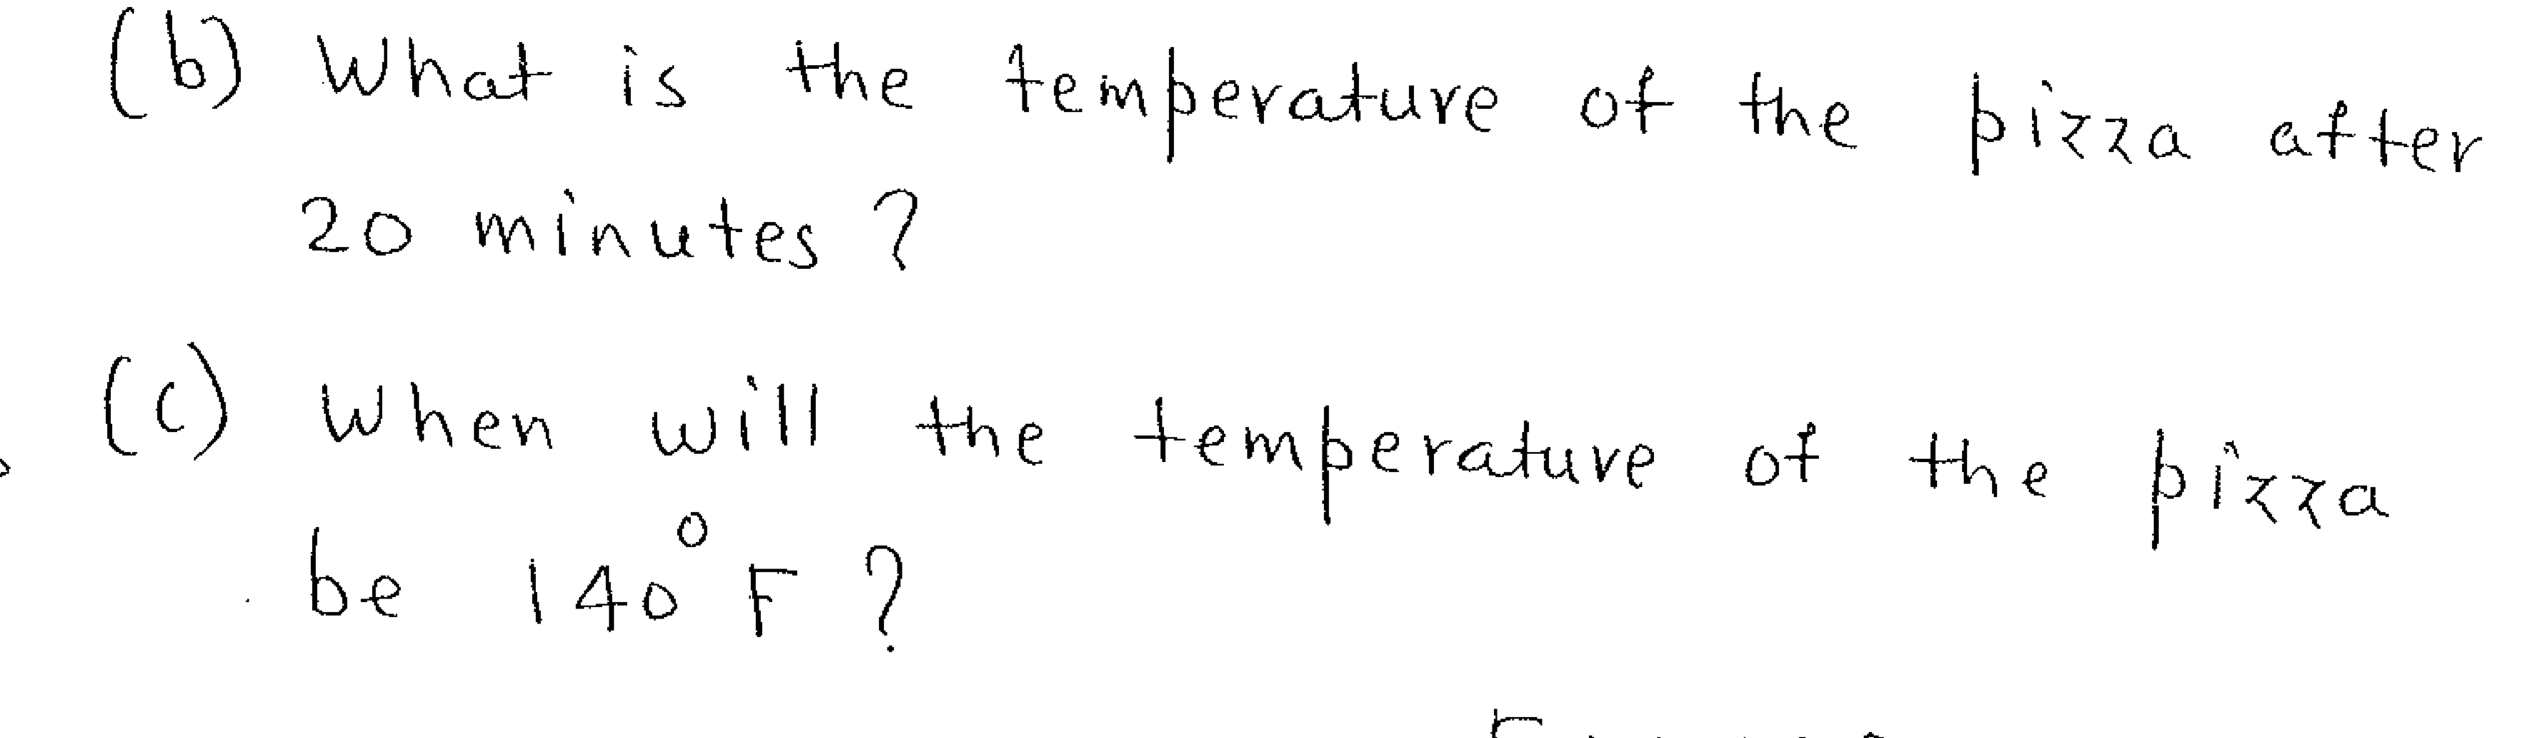 (b) What is the temperature of the pizza after
20 minutes ?
(c) When will the temperature of the pizza
be 140° F ?